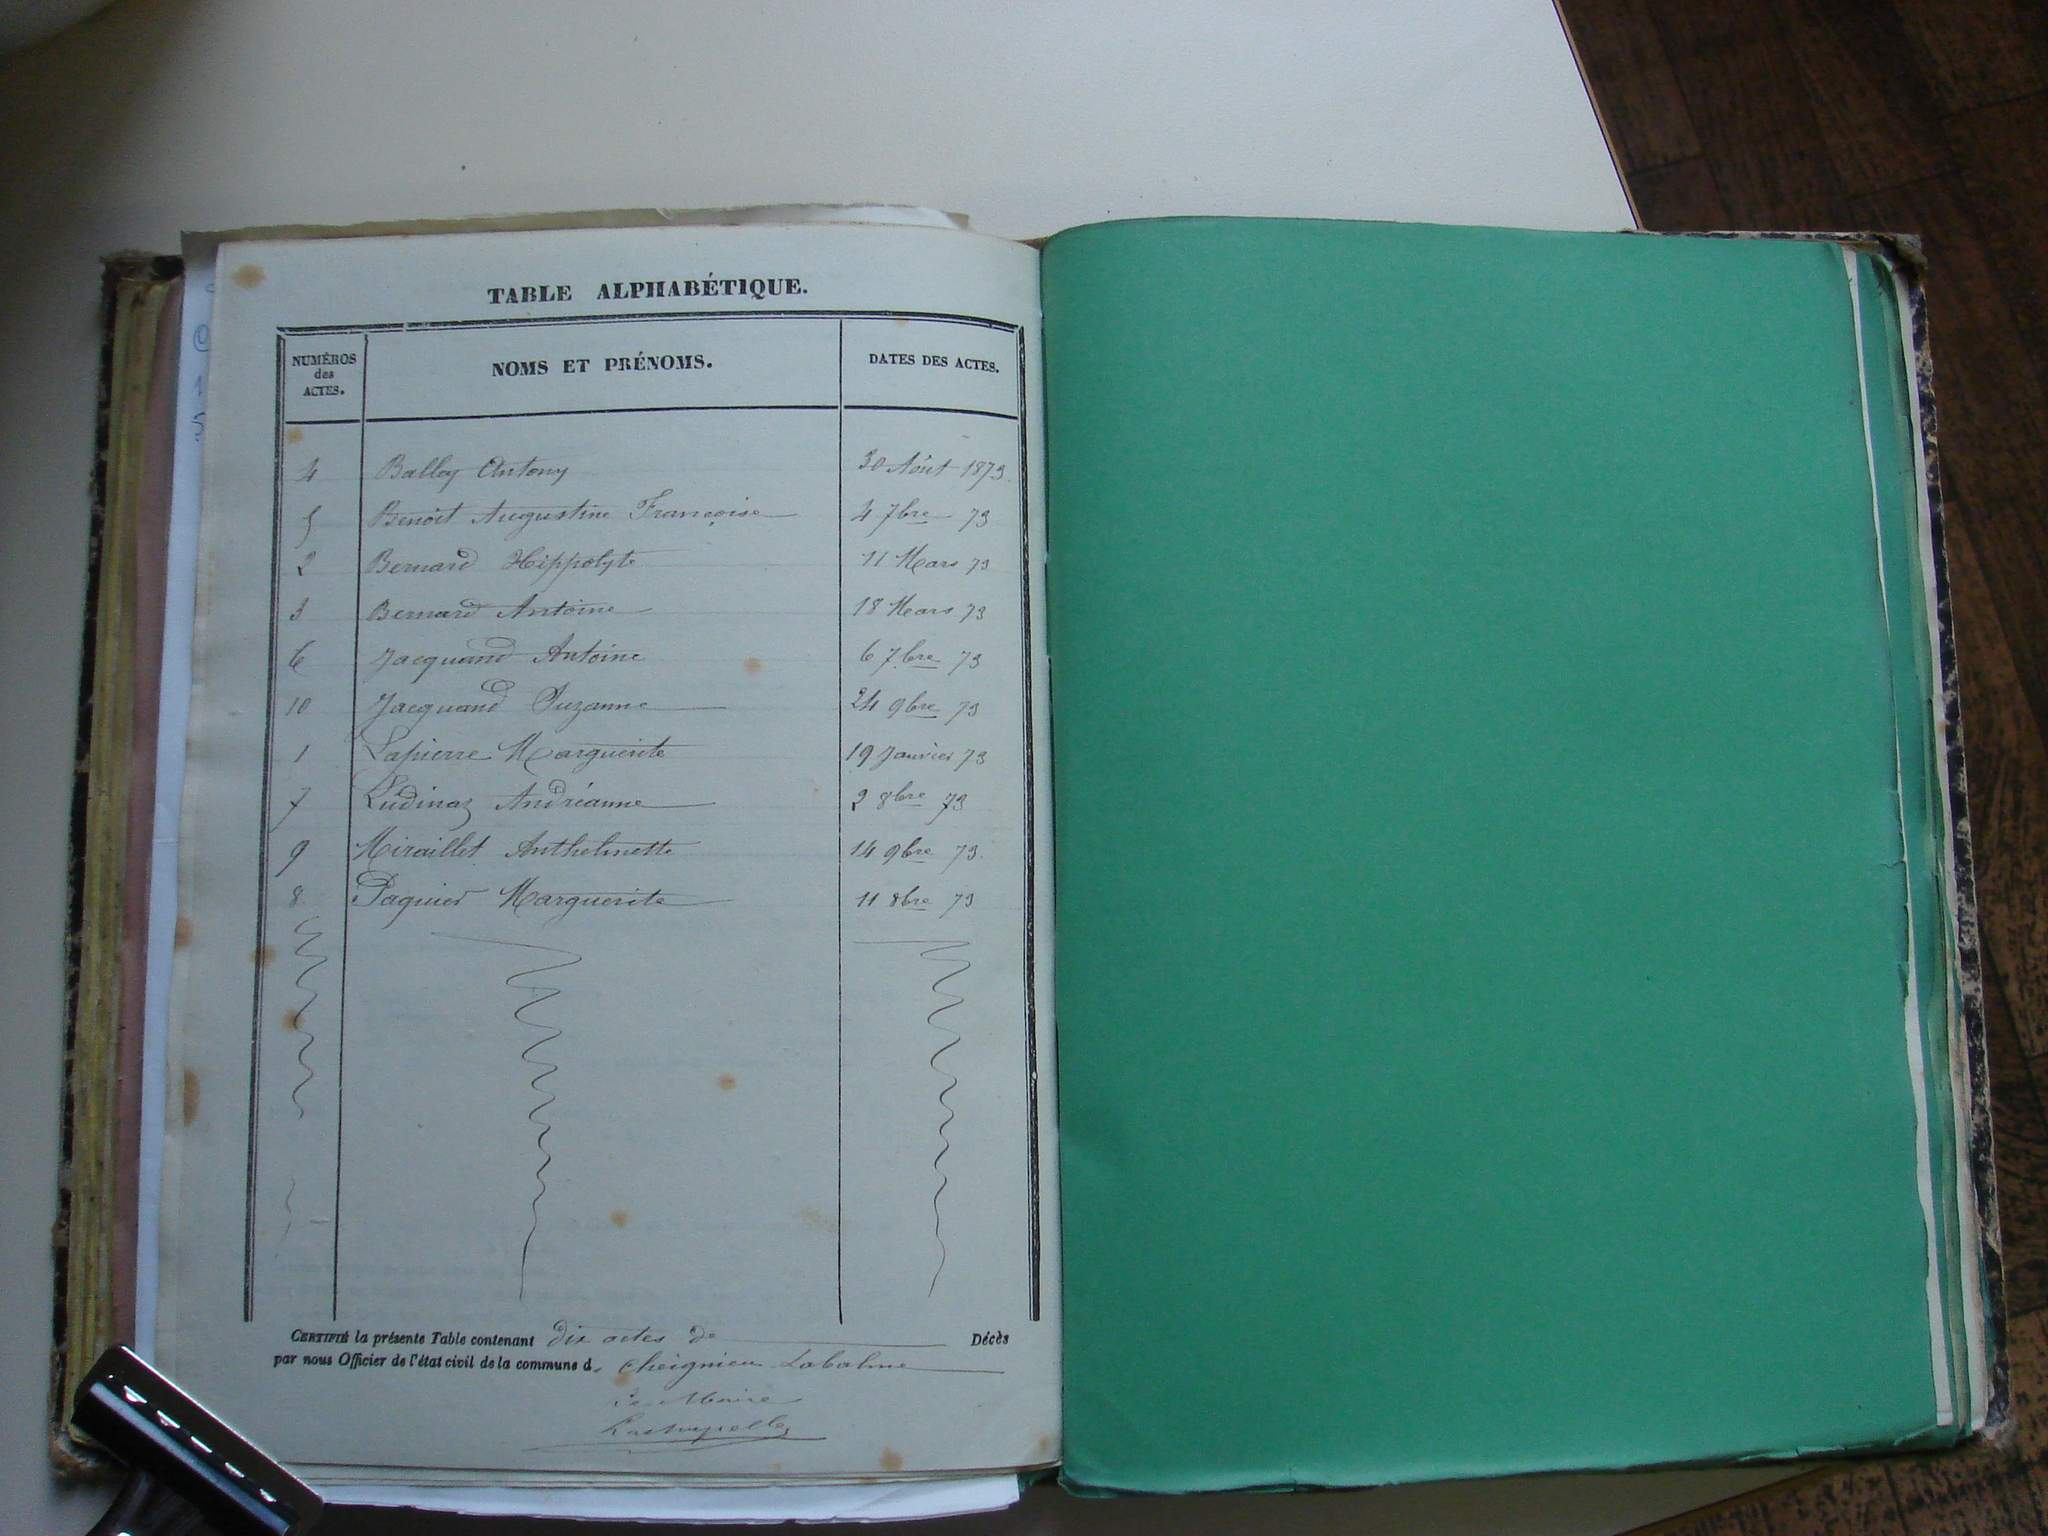 TABLE ALPHABÉTIQUE.
NUMÉROS des ACTES. NOMS ET PRÉNOMS. DATES DES ACTES.
4 Balloy Antony 30 Aôut 1873.
5 Benoit Augustine Françoise 4 7bre 73
2 Bernard Hippolyte 11 Mars 73
3 Bernard Antoine 18 Mars 73
6 Jacquand Antoine 6 7bre 73
10 Jacquand Suzanne 24 9bre 73
1 Lapierre Marguerite 19 Janvier 73
7 Ludinaz Andréanne 2 8bre 73
9 Miraillet Anthelmette 14 9bre 73.
8 Paquier Marguerite 11 8bre 73
CERTIFIÉ la présente Table contenant dix actes de Décès
par nous Officier de l'état civil de la commune d. Cheignieu Labalme
Le Maire